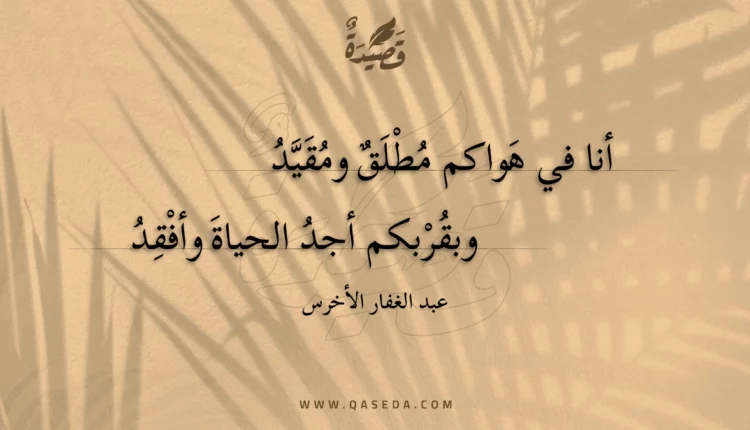 قَصِيدَةٌ
أنا في هَواكم مُطْلَقٌ ومُقَيَّدُ
وبقُرْبكم أجدُ الحياةَ وأفْقِدُ
عبد الغفار الأخرس
WWW.QASEDA.COM